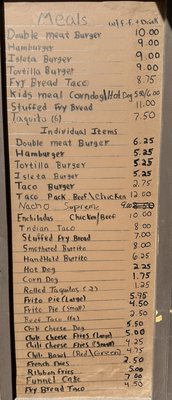 Meals w/F.F. + Drink
Double meat Burger 10.00
Hamburger 9.00
Isleta Burger 9.00
Tortilla Burger 9.00
Fry Bread Taco 8.75
Kids meal Corndog/Hot Dog
Stuffed Fry Bread 11.00
Taquito (6) 7.50
Individual Items
Double meat Burger 6.25
Hamburger 5.25
Tortilla Burger 5.25
Isleta Burger 5.25
Taco Burger 2.75
Taco Pack Beef/Chicken 12.00
Nacho Supreme
Enchiladas Chicken/Beef 10.00
Indian Taco 8.00
Stuffed Fry Bread 7.00
Smothered Burrito 8.00
HandHeld Burrito 6.25
Hot Dog 2.25
Corn Dog 1.75
Rolled Taquitos (2) 1.25
Frito Pie (Large) 5.75
Frito Pie (Small) 4.50
Beef Taco 2.50
Chili Cheese Dog 5.50
Chili Cheese Fries (Large) 5.00
Chili Cheese Fries (Small) 4.25
Chili Bowl (Red/Green) 4.75
French Fries 2.50
Ribbon Fries 5.00
Funnel Cake 7.00
Fry Bread Taco 4.50